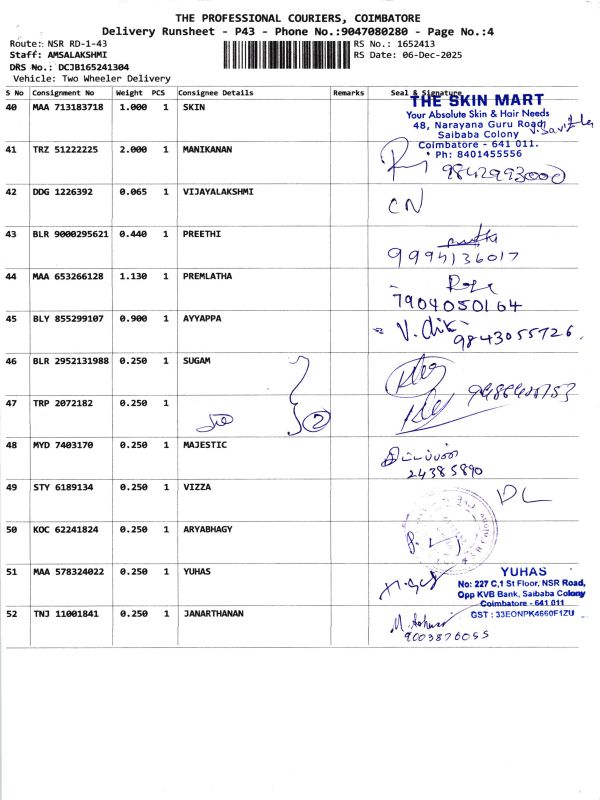 THE PROFESSIONAL COURIERS, COIMBATORE
Delivery Runsheet - P43 - Phone No.:9047080280 - Page No.:4
Route: NSR RD-1-43 RS No.: 1652413
Staff: AMSALAKSHMI RS Date: 06-Dec-2025
DRS No.: DCJB165241304
Vehicle: Two Wheeler Delivery
S No Consignment No Weight PCS Consignee Details Remarks Seal & Signature
40 MAA 713183718 1.000 1 SKIN
THE SKIN MART
Your Absolute Skin & Hair Needs
48, Narayana Guru Road
Saibaba Colony
Coimbatore - 641 011.
Ph: 8401455556
41 TRZ 51222225 2.000 1 MANIKANAN
9842993000
42 DDG 1226392 0.065 1 VIJAYALAKSHMI CN
43 BLR 9000295621 0.440 1 PREETHI
9994136017
44 MAA 653266128 1.130 1 PREMLATHA
7904050164
45 BLY 855299107 0.900 1 AYYAPPA
9843055726
46 BLR 2952131988 0.250 1 SUGAM
47 TRP 2072182 0.250 1 2
48 MYD 7403170 0.250 1 MAJESTIC
24385890
49 STY 6189134 0.250 1 VIZZA
50 KOC 62241824 0.250 1 ARYABHAGY
51 MAA 578324022 0.250 1 YUHAS
YUHAS
No: 227 C,1 St Floor, NSR Road,
Opp KVB Bank, Saibaba Colony
Coimbatore - 641 011
GST : 33EONPK4660F1ZU
52 TNJ 11001841 0.250 1 JANARTHANAN
9003876055